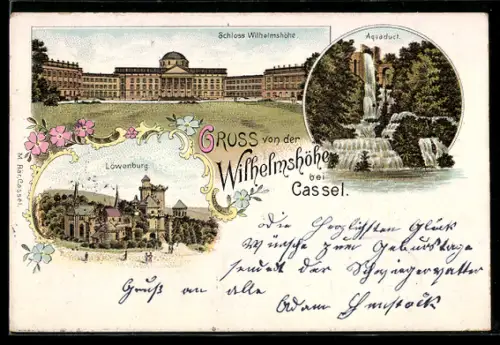 Schloss Wilhelmshöhe.
Aquaduct.
GRUSS von der
Wilhelmshöhe
bei
Cassel.
Löwenburg.
M. Bär, Cassel.
Die Herzlichsten Glück
Wünsche zum Geburtstage
sendet der Schwiegervatter
Gruß an alle
Adam